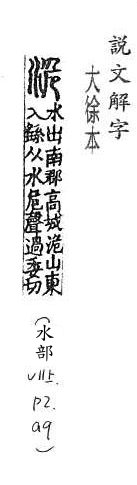 說文解字
大徐本
洈 水出南郡高城洈山東
入繇从水危聲過委切
(水部
VIII上.
P2.
a9)